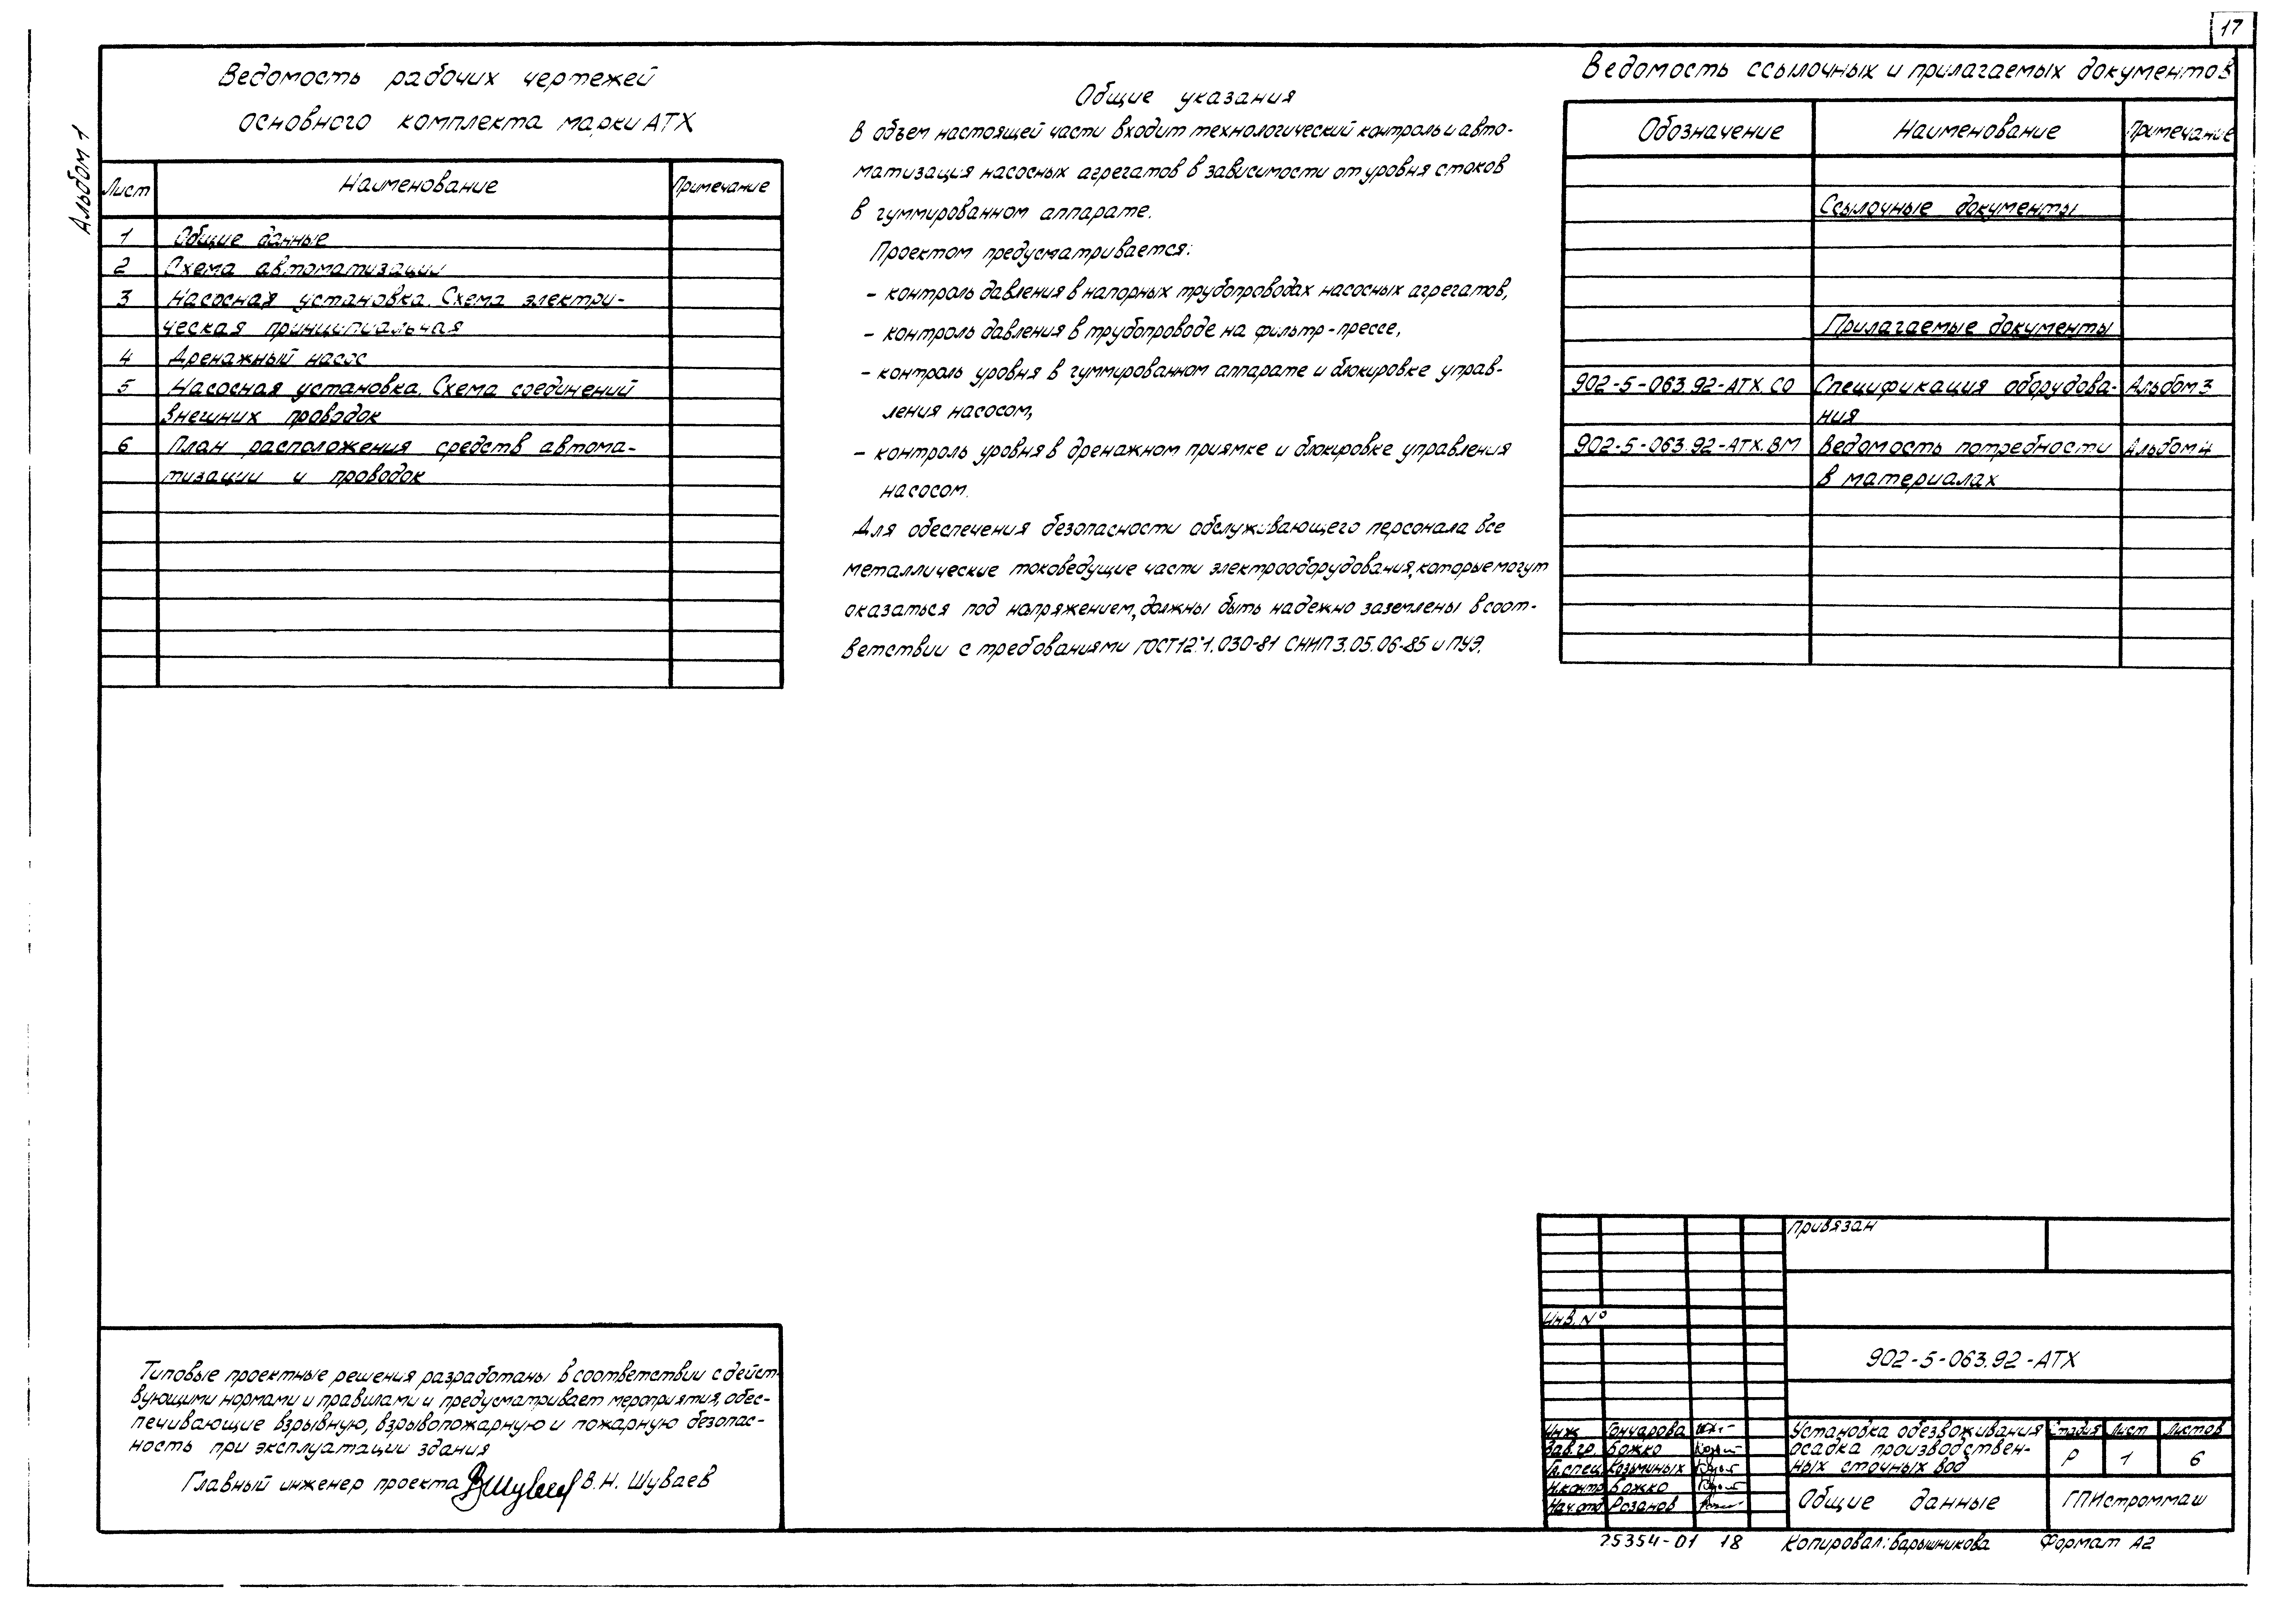 17
Альбом 1
Ведомость рабочих чертежей
основного комплекта марки АТХ
Лист Наименование Примечание
1 Общие данные
2 Схема автоматизации
3 Насосная установка. Схема электри-
ческая принципиальная
4 Дренажный насос
5 Насосная установка. Схема соединений
внешних проводок
6 План расположения средств автома-
тизации и проводок
Общие указания
В объем настоящей части входит технологический контроль и авто-
матизация насосных агрегатов в зависимости от уровня стоков
в гуммированном аппарате.
Проектом предусматривается:
- контроль давления в напорных трубопроводах насосных агрегатов,
- контроль давления в трубопроводе на фильтр-прессе,
- контроль уровня в гуммированном аппарате и блокировке управ-
ления насосом,
- контроль уровня в дренажном приямке и блокировке управления
насосом.
Для обеспечения безопасности обслуживающего персонала все
металлические токоведущие части электрооборудования, которые могут
оказаться под напряжением, должны быть надежно заземлены в соот-
ветствии с требованиями ГОСТ 12.1.030-81 СНИП 3.05.06-85 и ПУЭ.
Ведомость ссылочных и прилагаемых документов
Обозначение Наименование Примечание
Ссылочные документы
Прилагаемые документы
902-5-063.92-АТХ.СО Спецификация оборудова- Альбом 3
ния
902-5-063.92-АТХ.ВМ Ведомость потребности Альбом 4
в материалах
Типовые проектные решения разработаны в соответствии с дейст-
вующими нормами и правилами и предусматривает мероприятия, обес-
печивающие взрывную, взрывопожарную и пожарную безопас-
ность при эксплуатации здания
Главный инженер проекта В.Н. Шуваев
Привязан
Инв. №
902-5-063.92-АТХ
Инж. Гончарова
Зав.гр. Божко
Гл.спец. Козьминых
Н.контр Божко
Нач.отд Розанов
Установка обезвоживания
осадка производствен-
ных сточных вод
Стадия Лист Листов
Р 1 6
Общие данные
ГПИстроммаш
25354-01 18 Копировал: Барышникова Формат А2